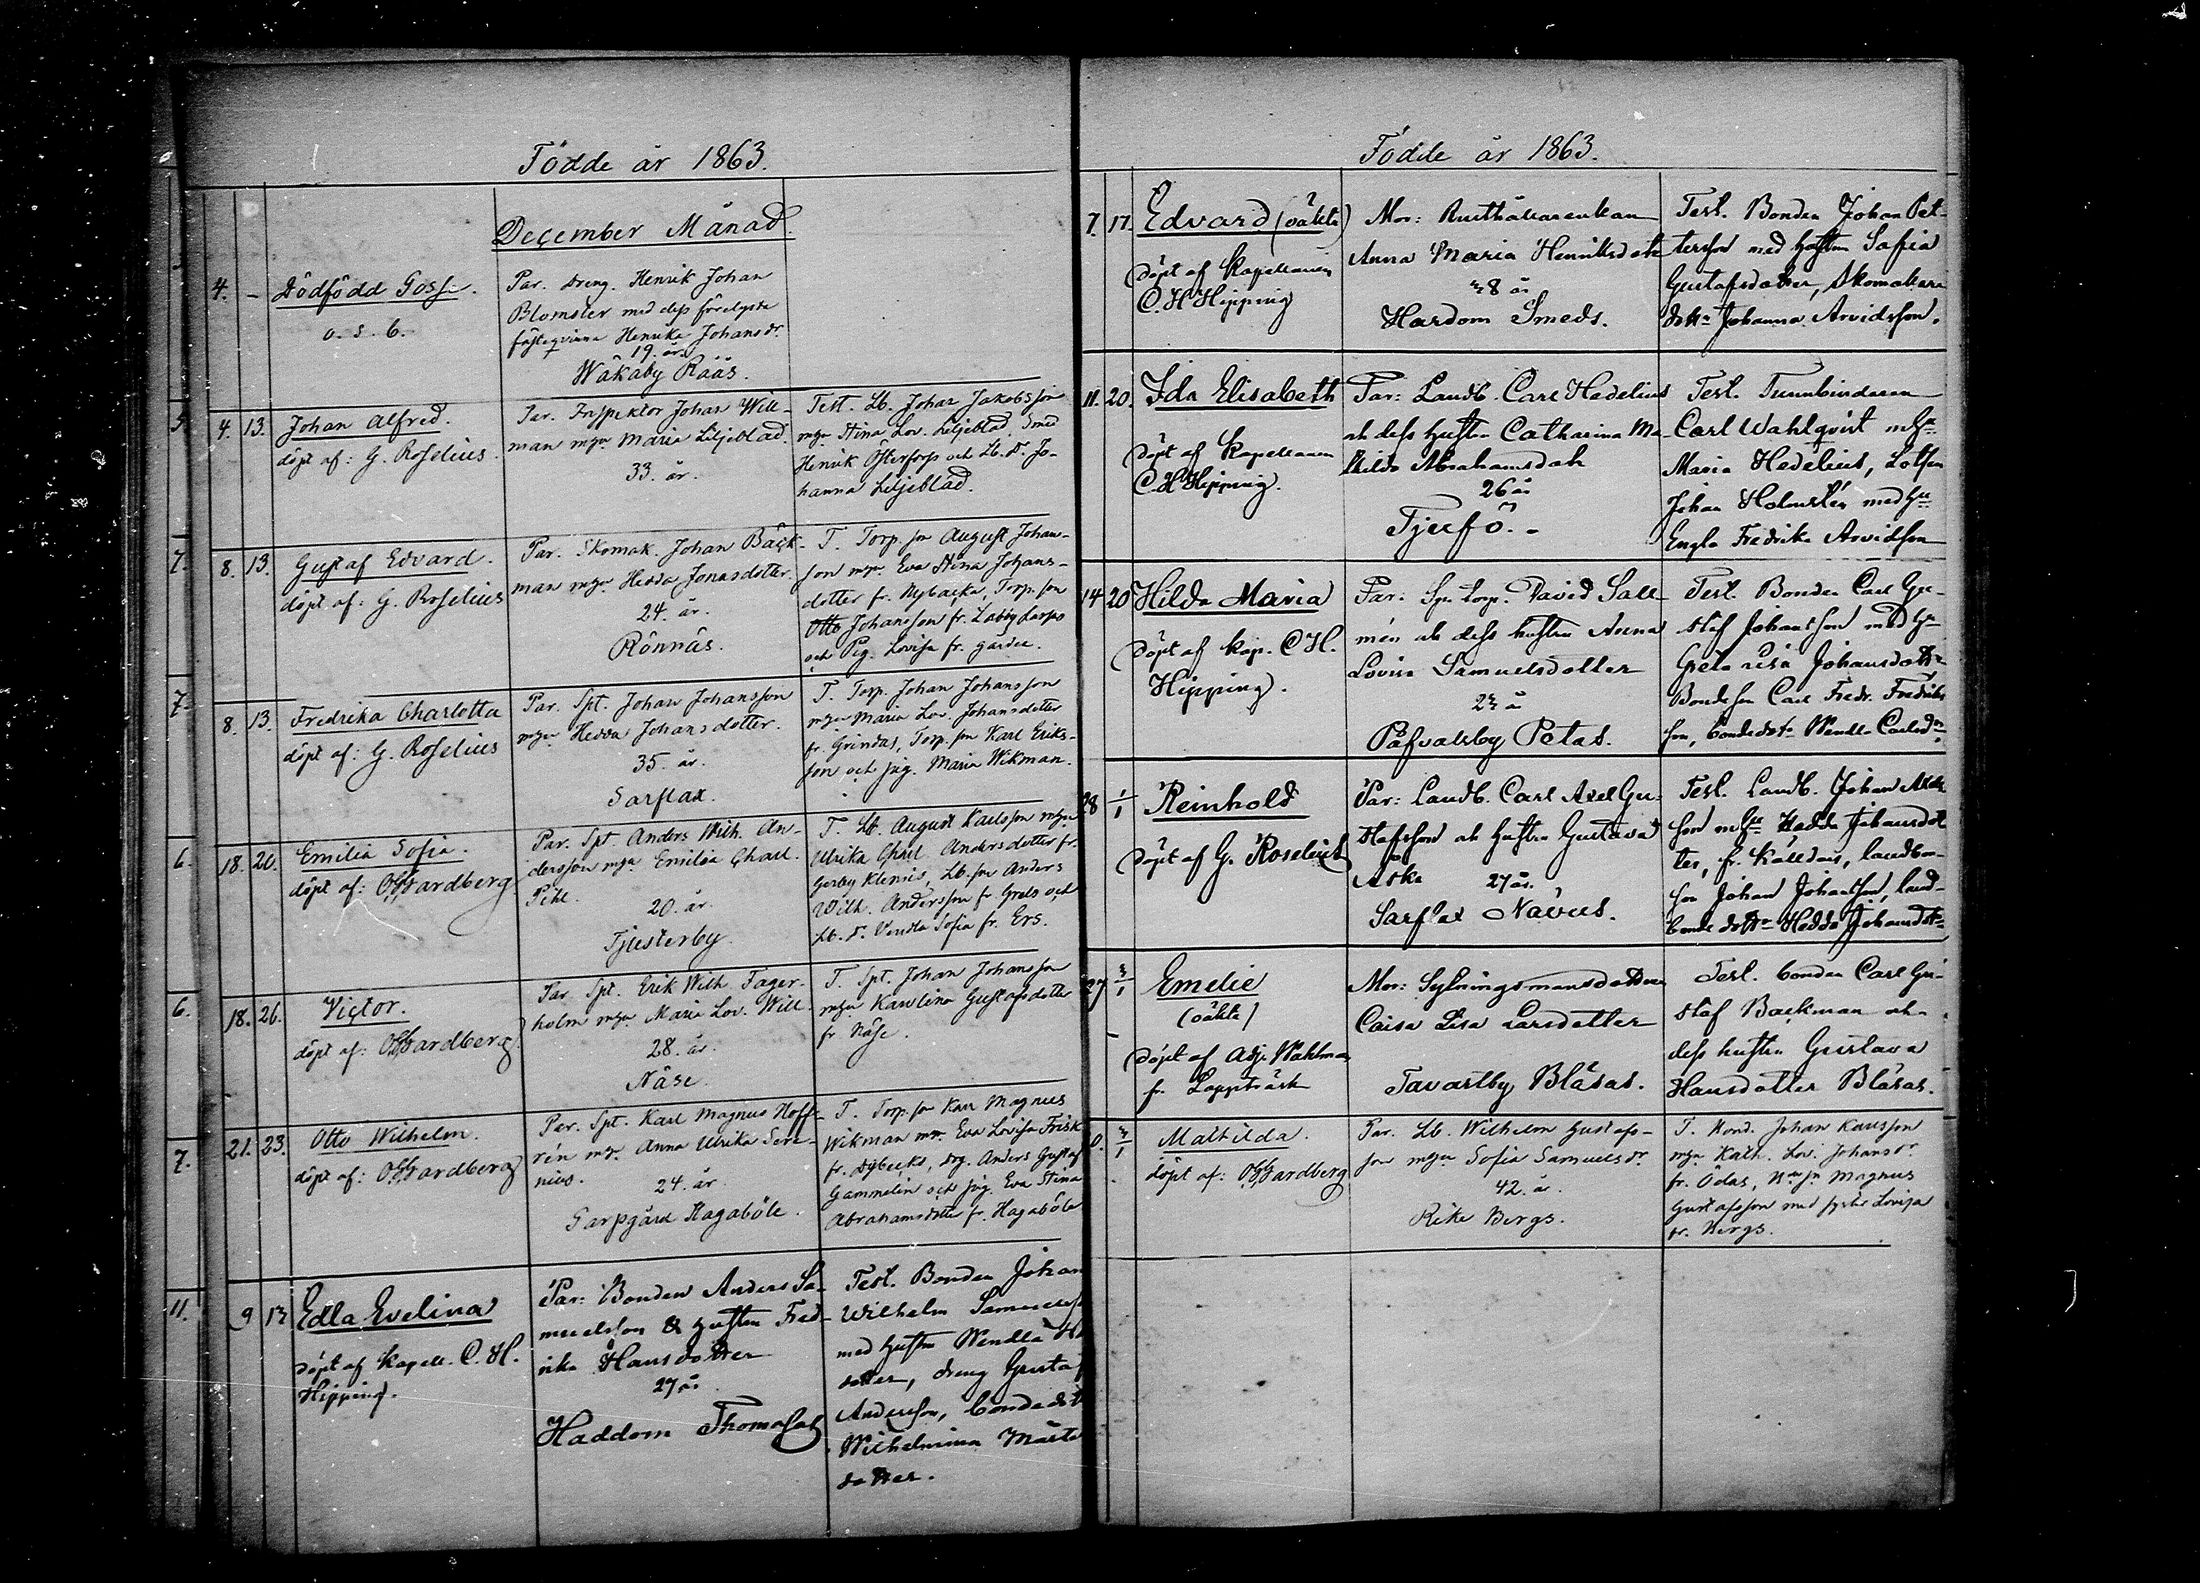 Födde år 1863.
December Månad.
4. - Dödfödd Gosse.
o. s. b.
Par. Dreng. Henrik Johan
Blomster med dess förelyste
fästeqvinna Henrika Johansdr.
19. år.
Wåkaby Rääs.
4. 13. Johan Alfred.
döpt af: G. Roselius.
Par. Inspektor Johan Will-
man m. Maria Liljeblad.
33. år.
Test. Lb. Johan Jakobsson
Stina Lov. Liljeblad, Smed
Henrik Österfors och Lb. d. Jo-
hanna Liljeblad.
8. 13. Gustaf Edvard.
döpt af: G. Roselius
Par. Skomak. Johan Bäck-
man Hedda Jonasdotter.
24. år.
Rönnäs.
T. Torp. son August Johans-
son Eva Stina Johans-
dotter fr. Nybacka, Torp. son
Otto Johansson fr. Labby
och Pig. Lovisa fr. gården.
8. 13. Fredrika Charlotta
döpt af: G. Roselius
Par. Spt. Johan Johansson
Hedda Johansdotter.
35. år.
Sarflax.
T. Torp. Johan Johansson
Maria Lov. Johansdotter
fr. Grindas, Torp. son Karl Eriks-
son och pig. Maria Wikman.
18. 20. Emilia Sofia.
döpt af: Gardberg
Par. Spt. Anders Wilh. An-
dersson Emilia Charl.
Pihl.
20. år.
Tjusterby.
T. Lb. August Karlsson
Ulrika Charl. Andersdotter fr.
Gerby Klenis, Lb. son Anders
Wilh. Andersson fr. och
Lb. d. Vendla Sofia fr. Ers.
18. 26. Victor.
döpt af: Gardberg
Par. Spt. Erik Wilh. Fager-
holm Maria Lov. Will.
28. år.
Näse.
T. Spt. Johan Johansson
Karolina Gustafsdotter
fr Näse.
21. 23. Otto Wilhelm.
döpt af: Gardberg
Par. Spt. Karl Magnus Hoff-
rén Anna Ulrika Sere-
nius.
24. år.
Garpgård Hagaböle.
T. Torp. son Karl Magnus
Wikman Eva Lovisa Frisk
fr. Dybecks, drg. Anders Gustaf
Gammelin och pig. Eva Stina
Abrahamsdotter fr. Hagaböle
9 13 Edla Evelina
Döpt af Kapell. C. H.
Hipping.
Par: Bonden Anders Sa-
muelsson & hustru Fred-
rika Hansdotter
27 år
Haddom Thomasas
Test. Bonden Johan
Wilhelm Samuels
med hustru Wendla
dotter, dreng Gustaf
Andersson, bondedot
Wilhelmina Mårts
dotter.
Födde år 1863.
7. 17. Edvard (oäkta)
Döpt af Kapellanen
C. H Hipping
Mor:
Anna Maria Henriksdotter
28 år
Hardom Smeds.
Test. Bonden Johan Pet-
tersson med hustru Sofia
Gustafsdotter, Skomakare
Johanna Arvidsson.
11. 20. Ida Elisabeth
Döpt af Kapellanen
C. H Hipping.
Par: Landb. Carl Hedelius
och dess hustru Catharina Ma-
thilda Abrahamsdotter
26 år
Tjufö. -
Test. Tunnbindaren
Carl Wahlqvist
Maria Hedelius, Lotsen
Johan Holmstén med
Engla Fredrika Arvidsson
14 20 Hilda Maria
Döpt af kap. C H.
Hipping.
Par: Spt. torp. David Sall-
mén och dess hustru Anna
Lovisa Samuelsdotter
23 år
Påfvalsby Petas.
Test. Bonden Carl Gu-
staf Johansson med
Greta Lisa Johansdotter
Bondeson Carl Fredr. Fredriks
son, bondedotr Wendla Carlsdr
28 1/1 Reinhold
Döpt af G. Roselius
Par: Landb. Carl Axel Gu-
stafsson och hustru Gustava
Aska 27 år.
Sarflax Nävus.
Test. Landb. Johan
son Hedda Johansdot
ter, fr. Källdars, landbon-
son Johan Johansson, land-
bonde dottr Hedda Johansdtr
27 3/1 Emelie
(oäkta)
Döpt af Adj. Wahlman
fr. Lappträsk
Mor: Sytningsmansdottren
Caisa Lisa Larsdotter
Tavastby Blåsas.
Test. bonden Carl Gu-
staf Backman och
dess hustru Gustava
Hansdotter Blåsas.
3/1 Mathilda.
döpt af: Gardberg
Par. Lb. Wilhelm Gustafs-
son Sofia Samuelsdr.
42. år.
Rike Bergs.
T. Bond. Johan Karlsson
Kath. Lov. Johansdr.
fr. Ödas, Magnus
Gustafsson med syster Lovisa
fr. Bergs.